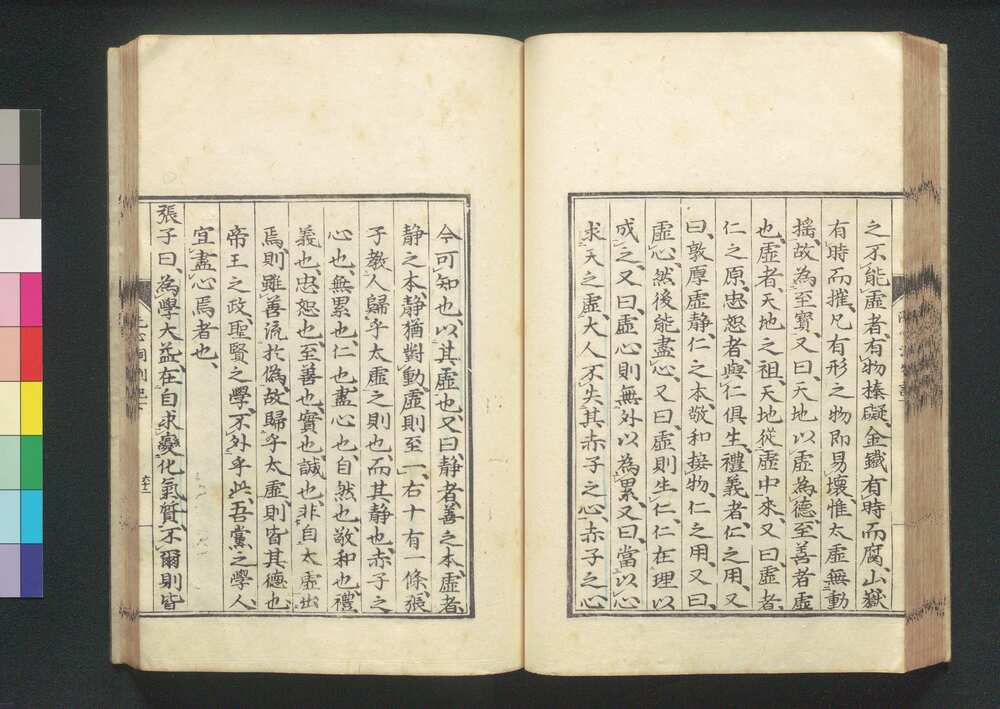 之不能虛者、有物榛礙、金鐵有時而腐、山嶽
有時而摧、凡有形之物即易壞、惟太虛無動
搖、故為至實、又曰、天地以虛為德、至善者虛
也、虛者、天地之祖、天地從虛中來、又曰、虛者、
仁之原、忠恕者、與仁俱生、禮義者、仁之用、又
曰、敦厚虛静、仁之本、敬和接物、仁之用、又曰、
虛心、然後能盡心、又曰、虛則生仁、仁在理以
成之、又曰、虛心則無外以為累、又曰、當以心
求天之虛、大人不失其赤子之心、赤子之心
今可知也、以其虛也、又曰、静者善之本、虛者、
静之本、静猶對動、虛則至一、右十有一條、張
子教人歸乎太虛之則也、而其静也、赤子之
心也、無累也、仁也、盡心也、自然也、敬和也、禮
義也、忠恕也、至善也、實也、誠也、非自太虛出
焉、則雖善流於偽、故歸乎太虛、則皆其德也、
帝王之政、聖賢之學、不外乎此、吾黨之學人、
宜盡心焉者也、
張子曰、為學大益、在自求變化氣質、不爾則皆